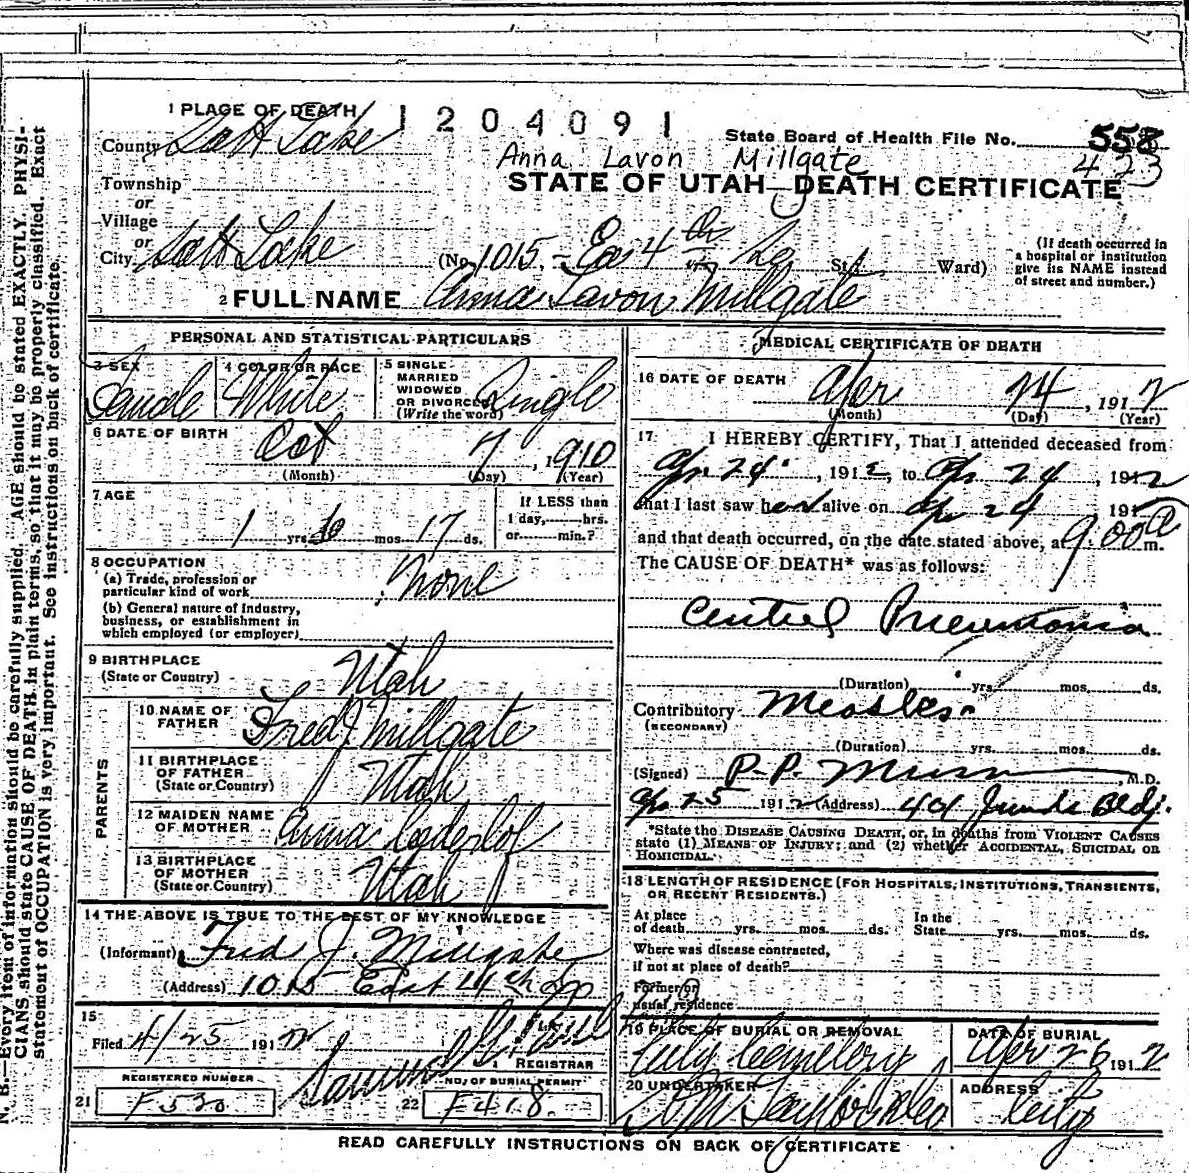 N. B.—Every item of information should be carefully supplied. AGE should be stated EXACTLY. PHYSI-
CIANS should state CAUSE OF DEATH in plain terms, so that it may be properly classified. Exact
statement of OCCUPATION is very important. See instructions on back of certificate.
1 PLACE OF DEATH
1204091
State Board of Health File No. 558
423
County Salt Lake
Anna Lavon Millgate
STATE OF UTAH—DEATH CERTIFICATE
Township
or
Village
or
City Salt Lake
(No. 1015 - Ea 4th So St.; Ward)
(If death occurred in
a hospital or institution
give its NAME instead
of street and number.)
2 FULL NAME Anna Lavon Millgate
PERSONAL AND STATISTICAL PARTICULARS
3 SEX
Female
4 COLOR OR RACE
White
5 SINGLE
MARRIED
WIDOWED
OR DIVORCED
(Write the word)
Single
6 DATE OF BIRTH
Oct 7, 1910
(Month) (Day) (Year)
7 AGE
1 yrs. 6 mos. 17 ds.
If LESS than
1 day, hrs.
or min.?
8 OCCUPATION
(a) Trade, profession or
particular kind of work None
(b) General nature of Industry,
business, or establishment in
which employed (or employer)
9 BIRTHPLACE
(State or Country) Utah
PARENTS
10 NAME OF
FATHER Fred J Millgate
11 BIRTHPLACE
OF FATHER
(State or Country) Utah
12 MAIDEN NAME
OF MOTHER Anna Cederlof
13 BIRTHPLACE
OF MOTHER
(State or Country) Utah
14 THE ABOVE IS TRUE TO THE BEST OF MY KNOWLEDGE
(Informant) Fred J. Millgate
(Address) 1015 East 4th So
15
Filed 4/25 1912
REGISTRAR
REGISTERED NUMBER
21 F530
NO. OF BURIAL PERMIT
22 F418.
MEDICAL CERTIFICATE OF DEATH
16 DATE OF DEATH
Apr 24, 1912
(Month) (Day) (Year)
17 I HEREBY CERTIFY, That I attended deceased from
Apr 24, 1912, to Apr 24, 1912
that I last saw her alive on Apr 24 191
and that death occurred, on the date stated above, at 9:00 a m.
The CAUSE OF DEATH* was as follows:
Central Pneumonia
(Duration) yrs. mos. ds.
Contributory Measles
(SECONDARY)
(Duration) yrs. mos. ds.
(Signed) P. P. M.D.
Apr 25 1912 (Address) 404 Bldg.
*State the DISEASE CAUSING DEATH, or, in deaths from VIOLENT CAUSES
state (1) MEANS OF INJURY; and (2) whether ACCIDENTAL, SUICIDAL OR
HOMICIDAL.
18 LENGTH OF RESIDENCE (FOR HOSPITALS, INSTITUTIONS, TRANSIENTS,
OR RECENT RESIDENTS.)
At place
of death yrs. mos. ds.
In the
State yrs. mos. ds.
Where was disease contracted,
if not at place of death?
Former or
usual residence
19 PLACE OF BURIAL OR REMOVAL
City Cemetery
DATE OF BURIAL
Apr 26 1912
20 UNDERTAKER
Taylor & Co
ADDRESS
City
READ CAREFULLY INSTRUCTIONS ON BACK OF CERTIFICATE